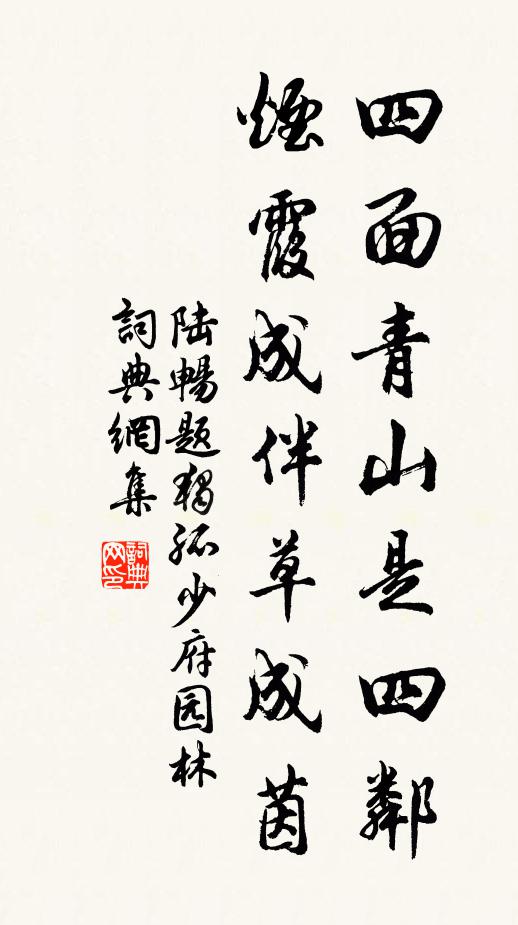 四面青山是四鄰
煙霞成伴草成茵
陆暢题獨孤少府园林
詞典網集
詞典网印